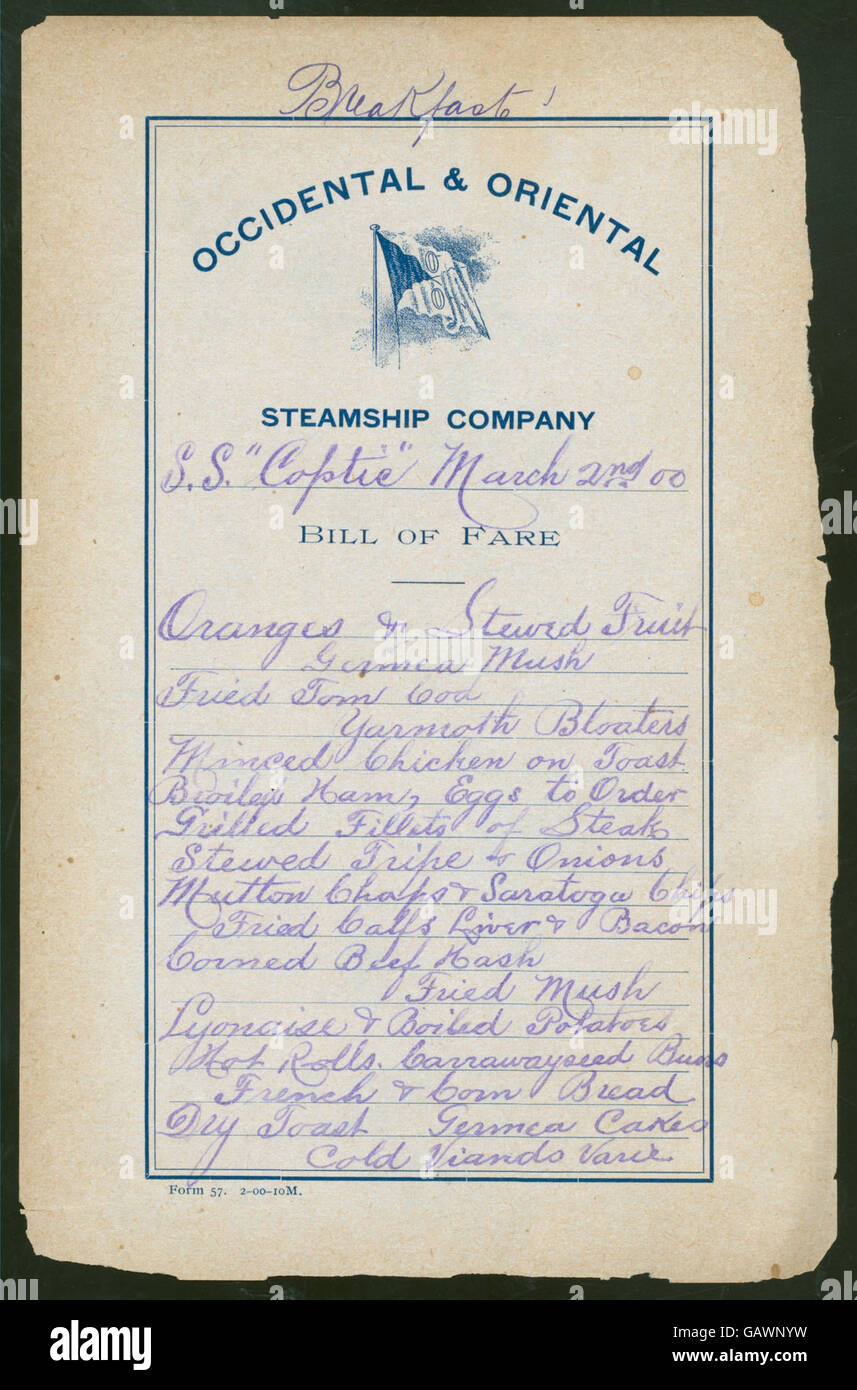 Breakfast
OCCIDENTAL & ORIENTAL
O
O
STEAMSHIP COMPANY
S.S. "Coptic" March 2nd 00
BILL OF FARE
Oranges & Stewed Fruit
Germea Mush
Fried Tom Cod
Yarmoth Bloaters
Minced Chicken on Toast
Broiled Ham, Eggs to Order
Grilled Fillets of Steak
Stewed Tripe & Onions
Mutton Chops & Saratoga Chips
Fried Calfs Liver & Bacon
Corned Beef Hash
Fried Mush
Lyonaise & Boiled Potatoes
Hot Rolls. Carrawayseed Buns
French & Corn Bread
Dry Toast Germea Cakes
Cold Viands Varie
Form 57. 2-00-10M.
alamy
a
alamy stock photo
GAWNYW
www.alamy.com